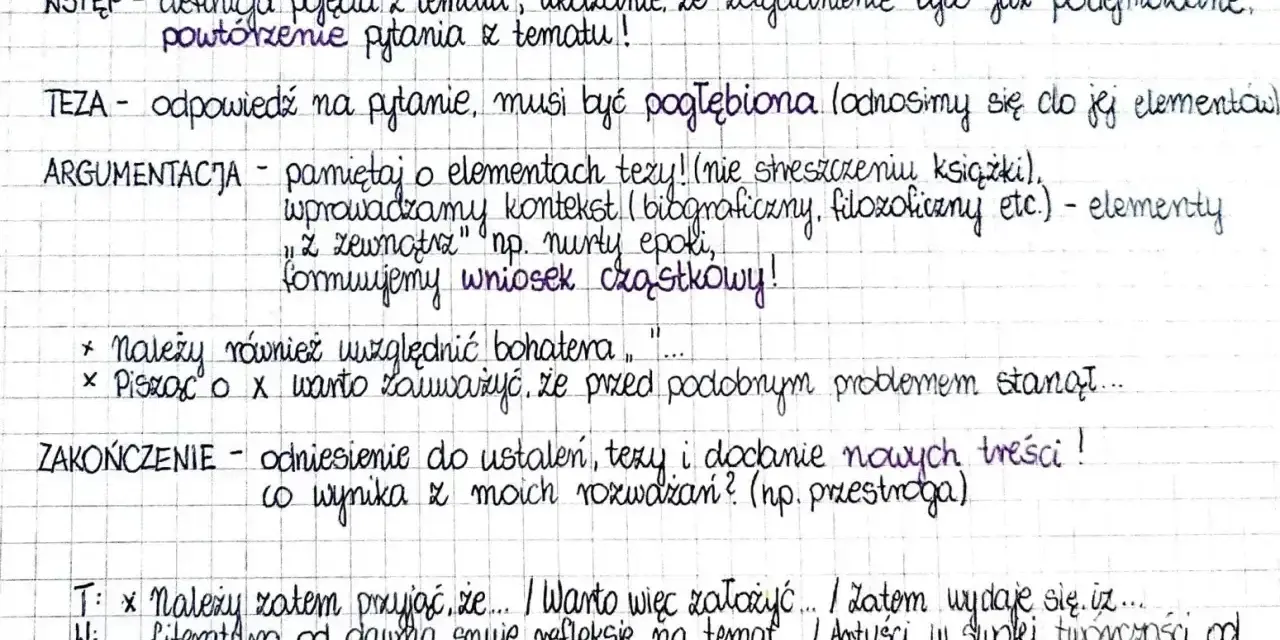 WSTĘP - definicja pojęcia z tematu, ukazanie, że zagadnienie było już podejmowane,
powtórzenie pytania z tematu!
TEZA - odpowiedź na pytanie, musi być pogłębiona (odnosimy się do jej elementów)
ARGUMENTACJA - pamiętaj o elementach tezy! (nie streszczeniu książki),
wprowadzamy kontekst (biograficzny, filozoficzny etc.) - elementy
„z zewnątrz" np. nurty epoki,
formuujemy wniosek cząstkowy!
× Należy również uwzględnić bohatera „ "...
× Pisząc o x warto zauważyć, że przed podobnym problemem stanął...
ZAKOŃCZENIE - odniesienie do ustaleń, tezy i dodanie nowych treści!
co wynika z moich rozważań? (np. przestroga)
T: × Należy zatem przyjąć, że... / Warto więc założyć... / Zatem wydaje się, iż...
Literatura od dawna snuje refleksje na temat / Artyści w swojej twórczości od